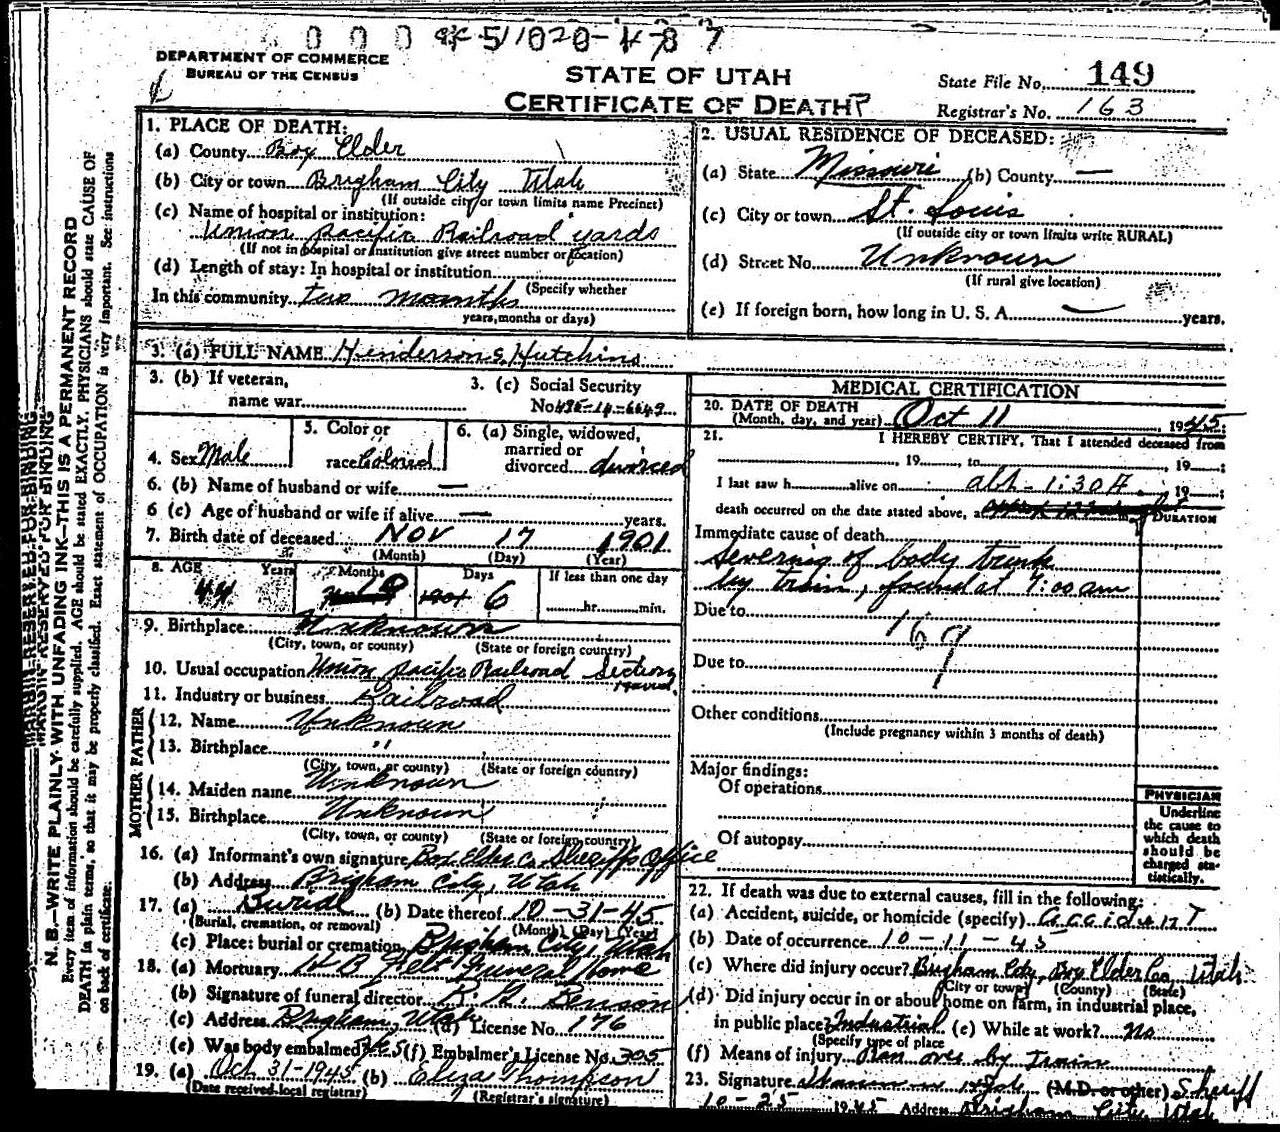 DEPARTMENT OF COMMERCE
BUREAU OF THE CENSUS
STATE OF UTAH
CERTIFICATE OF DEATH
State File No. 149
Registrar's No. 163
1. PLACE OF DEATH:
(a) County Box Elder
(b) City or town Brigham City Utah
(If outside city or town limits name Precinct)
(c) Name of hospital or institution:
Union Pacific Railroad yards
(If not in hospital or institution give street number or location)
(d) Length of stay: In hospital or institution
(Specify whether
In this community two months
years, months or days)
2. USUAL RESIDENCE OF DECEASED:
(a) State Missouri (b) County —
(c) City or town St. Louis
(If outside city or town limits write RURAL)
(d) Street No. Unknown
(If rural give location)
(e) If foreign born, how long in U. S. A. — years.
3. (a) FULL NAME Henderson S. Hutchins
3. (b) If veteran,
name war
3. (c) Social Security
No.
4. Sex Male
5. Color or
race Colored
6. (a) Single, widowed,
married or
divorced divorced
6. (b) Name of husband or wife —
6 (c) Age of husband or wife if alive — years.
7. Birth date of deceased Nov 17 1901
(Month) (Day) (Year)
8. AGE Years Months Days If less than one day
44 6 hr. min.
9. Birthplace Unknown
(City, town, or county) (State or foreign country)
10. Usual occupation Union Pacific Railroad Section
11. Industry or business Railroad
FATHER
12. Name Unknown
13. Birthplace "
(City, town, or county) (State or foreign country)
MOTHER
14. Maiden name Unknown
15. Birthplace Unknown
(City, town, or county) (State or foreign country)
16. (a) Informant's own signature Box Elder Co. Sheriff's Office
(b) Address Brigham City, Utah
17. (a) Burial (b) Date thereof 10-31-45
(Burial, cremation, or removal) (Month) (Day) (Year)
(c) Place: burial or cremation Brigham City, Utah
18. (a) Mortuary Funeral Home
(b) Signature of funeral director Benson
(c) Address Brigham, Utah (d) License No. 176
(e) Was body embalmed Yes (f) Embalmer's License No. 305
19. (a) Oct 31-1945 (b) Eliza Thompson
(Date received local registrar) (Registrar's signature)
MEDICAL CERTIFICATION
20. DATE OF DEATH
(Month, day, and year) Oct 11, 1945
21. I HEREBY CERTIFY, That I attended deceased from
, 19 , to , 19 ;
I last saw h alive on abt- 1:30 A , 19 ;
death occurred on the date stated above, at
DURATION
Immediate cause of death
Severing of body trunk
by train, found at 7:00 am
Due to
169
Due to
Other conditions
(Include pregnancy within 3 months of death)
Major findings:
Of operations
Of autopsy
PHYSICIAN
Underline
the cause to
which death
should be
charged sta-
tistically.
22. If death was due to external causes, fill in the following:
(a) Accident, suicide, or homicide (specify) accident
(b) Date of occurrence 10-11-45
(c) Where did injury occur? Brigham City, Box Elder Co, Utah
(City or town) (County) (State)
(d) Did injury occur in or about home on farm, in industrial place,
in public place? Industrial (e) While at work? no
(Specify type of place
(f) Means of injury Ran over by Train
23. Signature (M.D. or other) Sheriff
10-25 1945 Address Brigham City Utah
MARGIN RESERVED FOR BINDING
N. B.—WRITE PLAINLY WITH UNFADING INK—THIS IS A PERMANENT RECORD
Every item of information should be carefully supplied. AGE should be stated EXACTLY. PHYSICIANS should state CAUSE OF
DEATH in plain terms, so that it may be properly classified. Exact statement of OCCUPATION is very important. See instructions
on back of certificate.